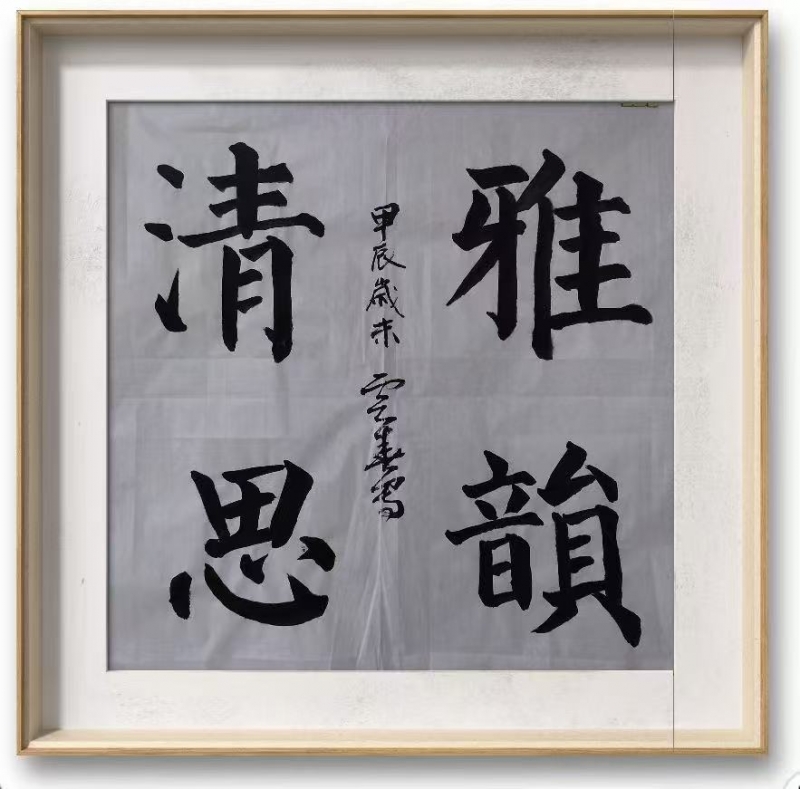 雅韻
清思
甲辰歲末